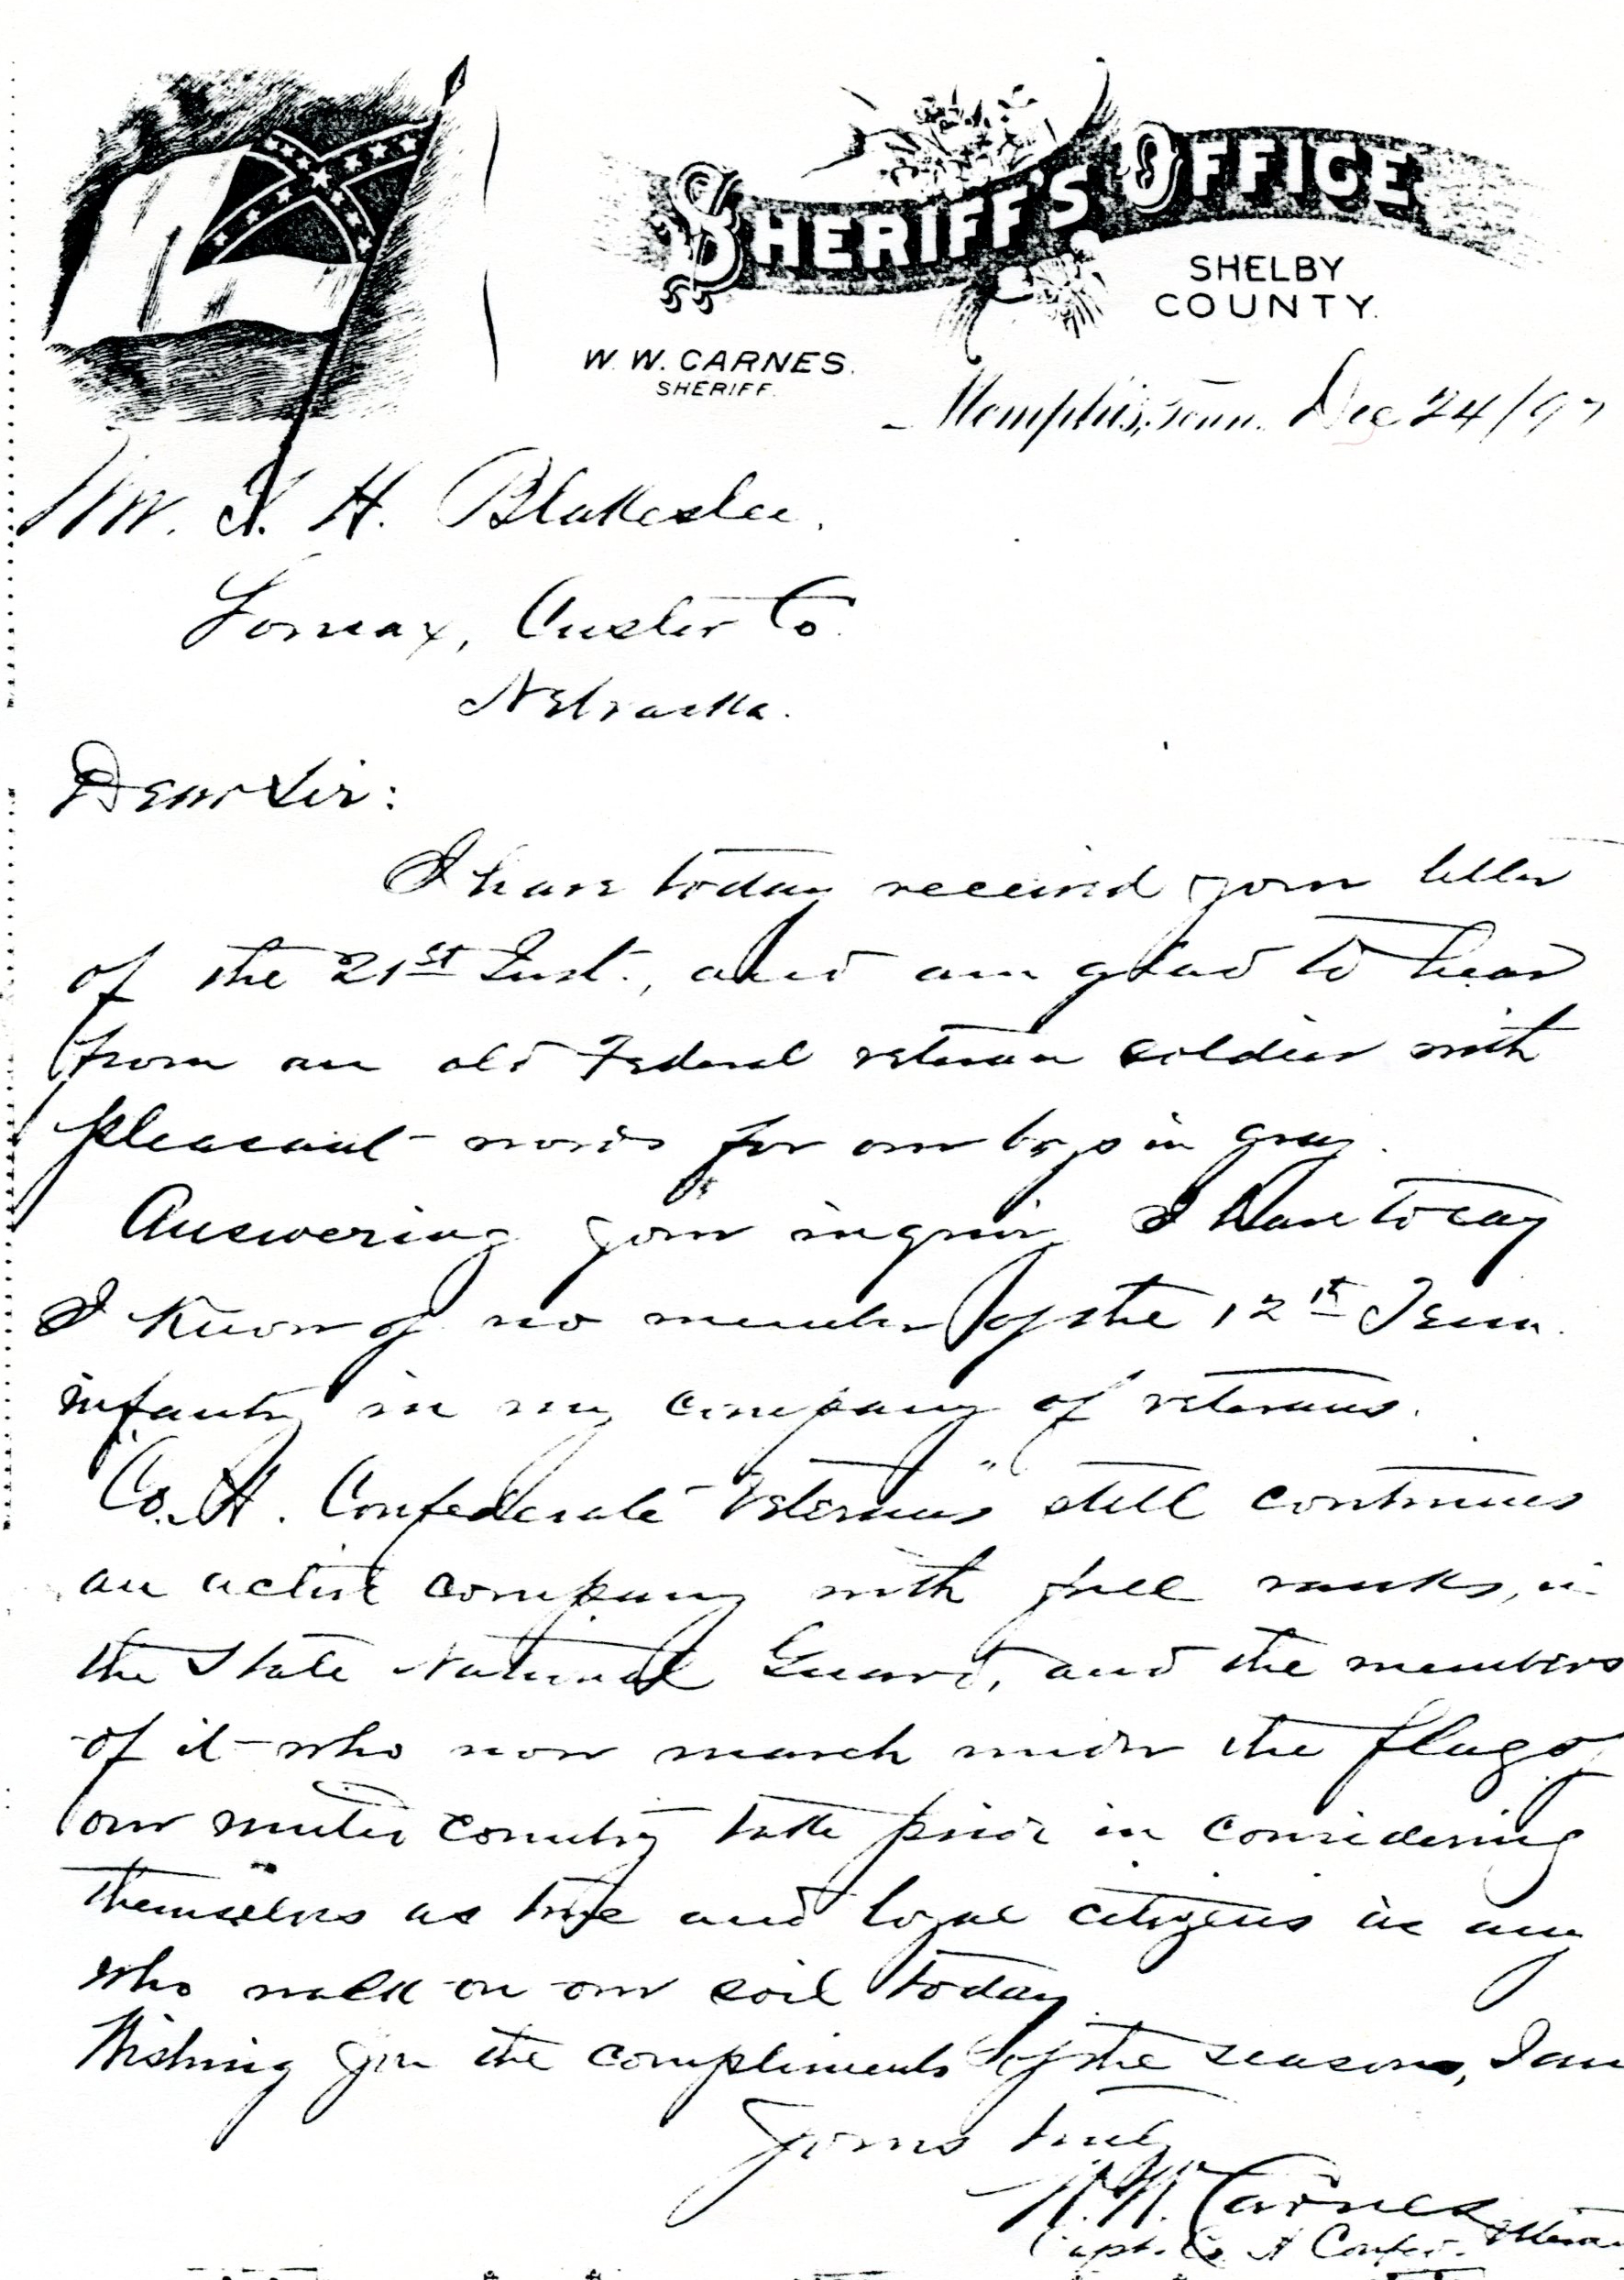 SHERIFF'S OFFICE
SHELBY
COUNTY.
W. W. CARNES.
SHERIFF.
Memphis, Tenn. Dec 24/97
Mr. H. Blakeslee.
Lomax, Custer Co.
Nebraska.
Dear Sir:
I have today received your letter
of the 21st Inst., and am glad to hear
from an old Federal veteran soldier with
pleasant words for our boys in gray.
Answering your inquiry I have to say
I know of no member of the 12th Tenn.
infantry in my company of veterans.
"Co. A. Confederate Veterans" still continues
an active company with full ranks, in
the State National Guard, and the members
of it who now march under the flag of
our united country take pride in considering
themselves as true and loyal citizens as any
who walk on our soil today.
Wishing you the compliments of the seasons, I am
Yours truly
W. W. Carnes
Capt. Co. A Confed. Veterans